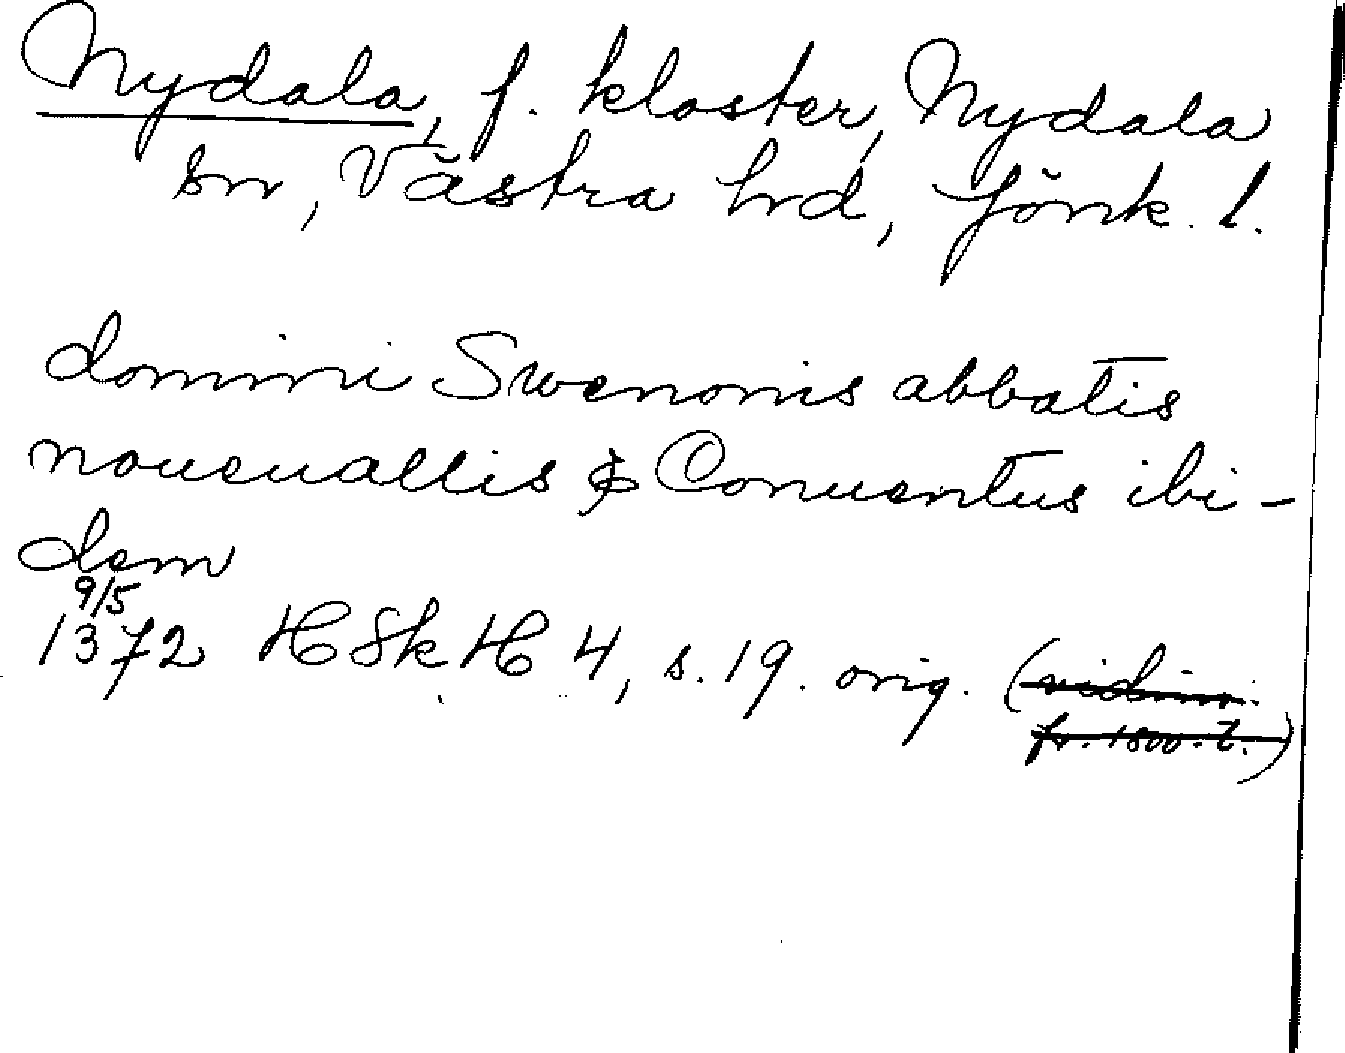 Nydala, f. kloster, Nydala
sn, Västra hrd, Jönk. l.
domini Swenonis abbatis
noueuallis & Conuentus ibi-
dem
9/5
1372 HSkH 4, s. 19. orig. (vidim.
fr. 1500-t.)